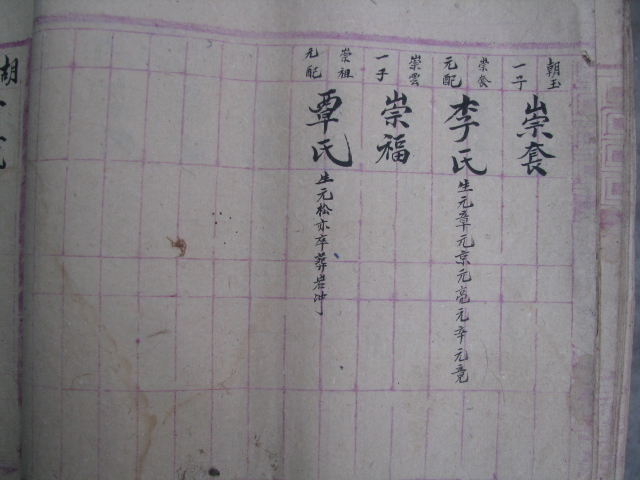 朝玉
一子
崇套
崇套
元配
李氏生元章元京元亮元卒元竟
崇雲
一子
崇福
崇祖
元配
覃氏生元松亦卒葬岩冲
胡